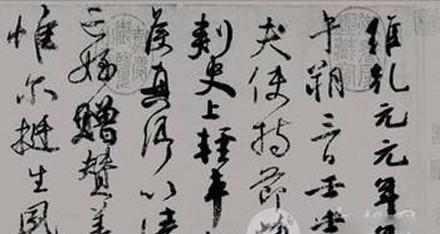 維乾元元年
午朔三日壬
夫使持節
刺史上輕車
侯真卿以清
亡姪贈贊善
惟尔挺生夙